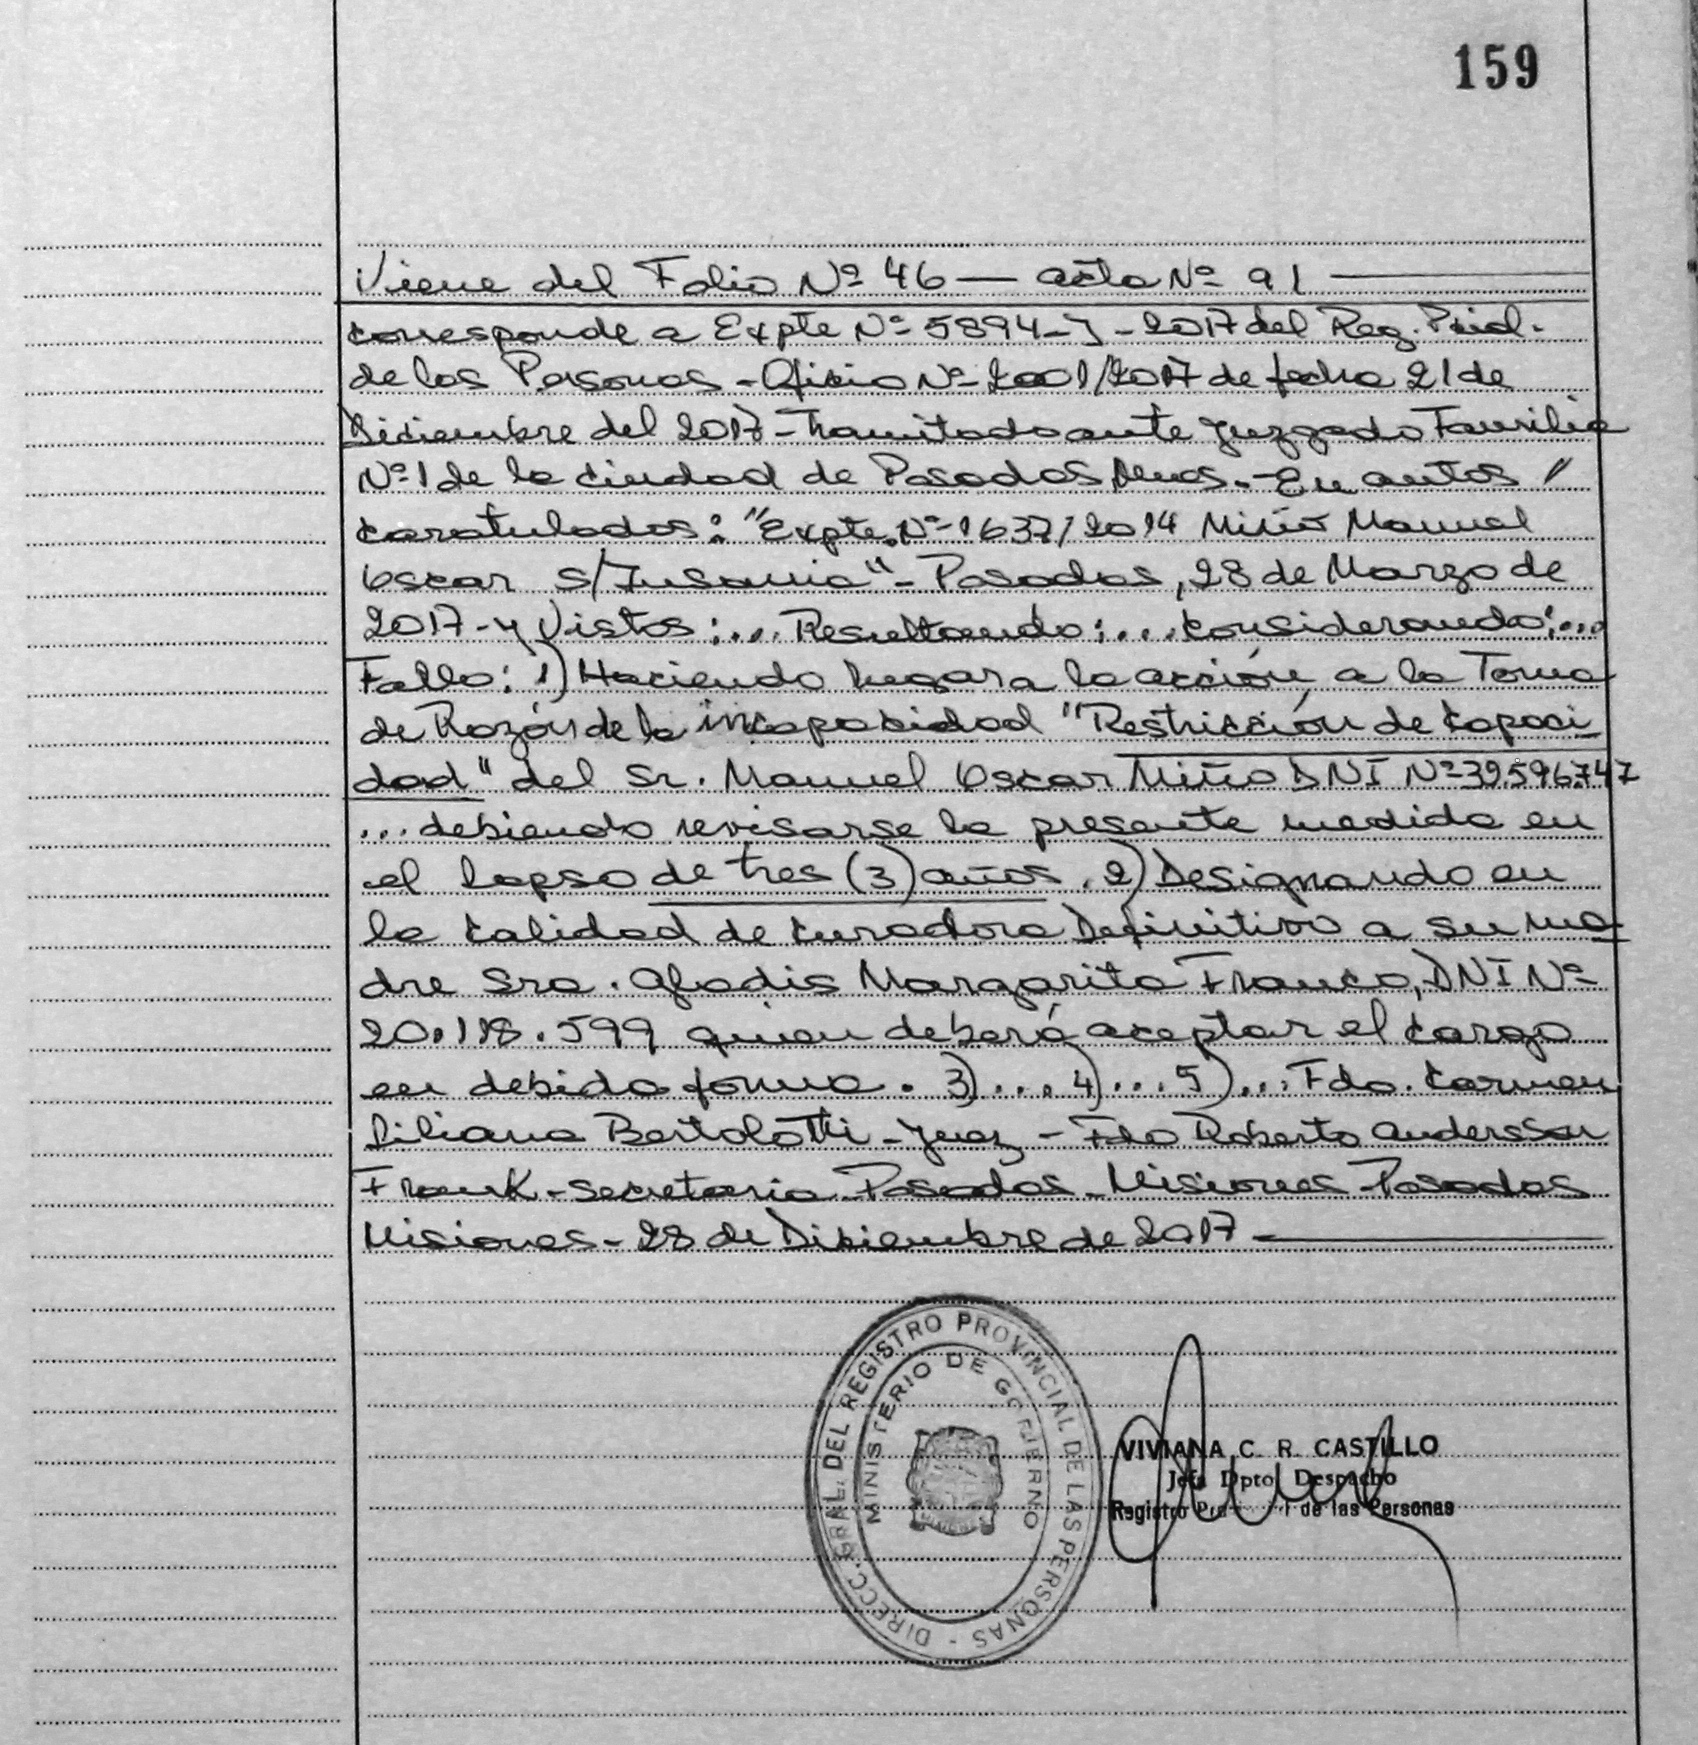 159
Viene del Folio Nº 46 — acta Nº 91
corresponde a Expte Nº 5894-J-2017 del Reg. Pcial.
de las Personas - Oficio Nº 2001/2017 de fecha 21 de
Diciembre del 2017 - Tramitado ante Juzgado Familia
Nº 1 de la ciudad de Posadas, Mnes. - En autos "
caratulados: "Expte. Nº 1637/2014 Miño Manuel
Oscar s/Insania" - Posadas, 28 de Marzo de
2017 - y Vistos:... Resultando:... Considerando:...
Fallo: 1) Haciendo lugar a la acción, a la Toma
de Razón de la incapacidad "Restricción de Capaci
dad" del Sr. Manuel Oscar Miño DNI Nº 39.596.747
... debiendo revisarse la presente medida en
el lapso de tres (3) años. 2) Designando en
la Calidad de Curadora Definitiva a su ma-
dre Sra. Gladis Margarita Franco, DNI Nº
20.118.599 quien deberá aceptar el cargo
en debida forma. 3)... 4)... 5)... Fdo. Carmen
Liliana Bertolotti - Juez - Fdo Roberto Andersson
Frank - Secretario Posadas - Misiones - Posadas
Misiones - 28 de Diciembre de 2017
DIRECC. GRAL. DEL REGISTRO PROVINCIAL DE LAS PERSONAS -
MINISTERIO DE GOBIERNO
VIVIANA C. R. CASTILLO
Jefa Dpto. Despacho
Registro de las Personas